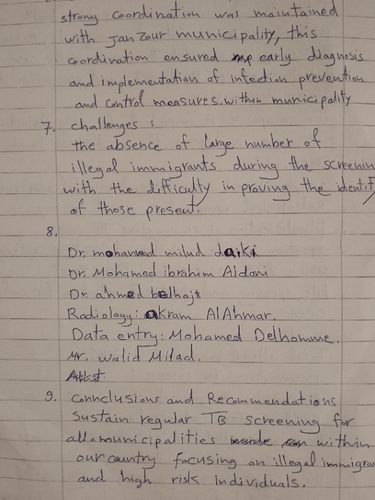 strong coordination was maintained
with Janzour municipality, this
coordination ensured early diagnosis
and implementation of infection prevention
and control measures within municipality
7. challenges :
the absence of large number of
illegal immigrants during the screenin
with the difficulty in proving the identity
of those present.
8.
Dr. mohamed milud daiki
Dr. Mohamed ibrahim Aldani
Dr. ahmed belhaj
Radiology: akram AlAhmar.
Data entry: Mohamed Delhomme.
Mr. Walid Milad.
9. Connclusions and Recommendations
Sustain regular TB screening for
all municipalities within
our country focusing on illegal immigra
and high risk individuals.